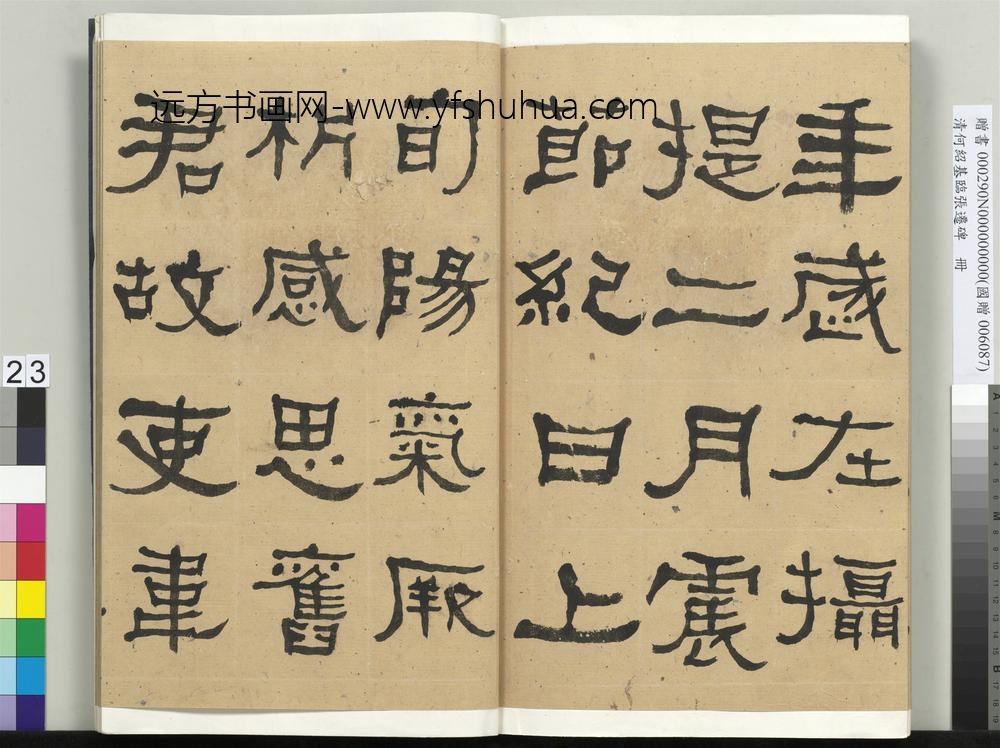 年歲在攝
提二月震
節紀日上
旬陽氣厥
析感思舊
君故吏韋
远方书画网-www.yfshuhua.com
贈書 000290N000000000(國贈 006087)
清何紹基臨張遷碑 冊
23